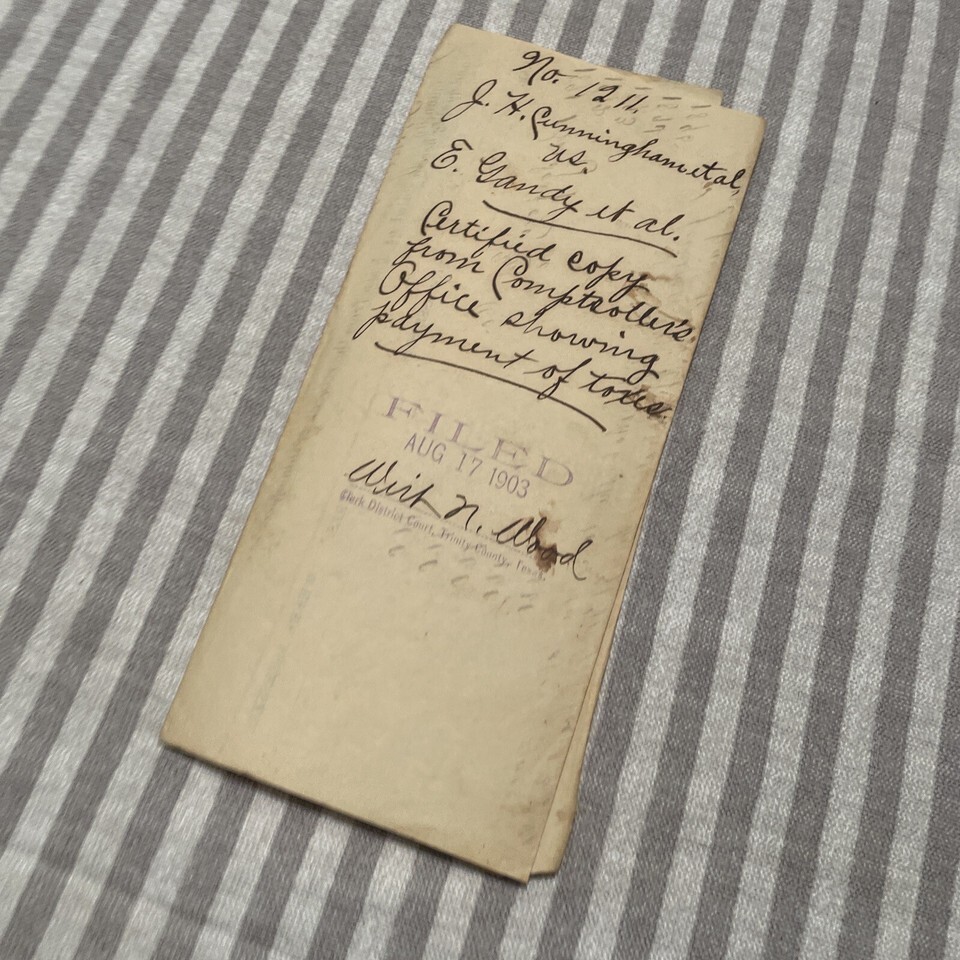 No. 1211.
J. H. Cunningham et al,
vs.
E. Gandy et al.
Certified copy
from Comptroller's
Office showing
payment of taxes.
FILED
AUG 17 1903
Wirt N. Wood
Clerk District Court, Trinity County, Texas.